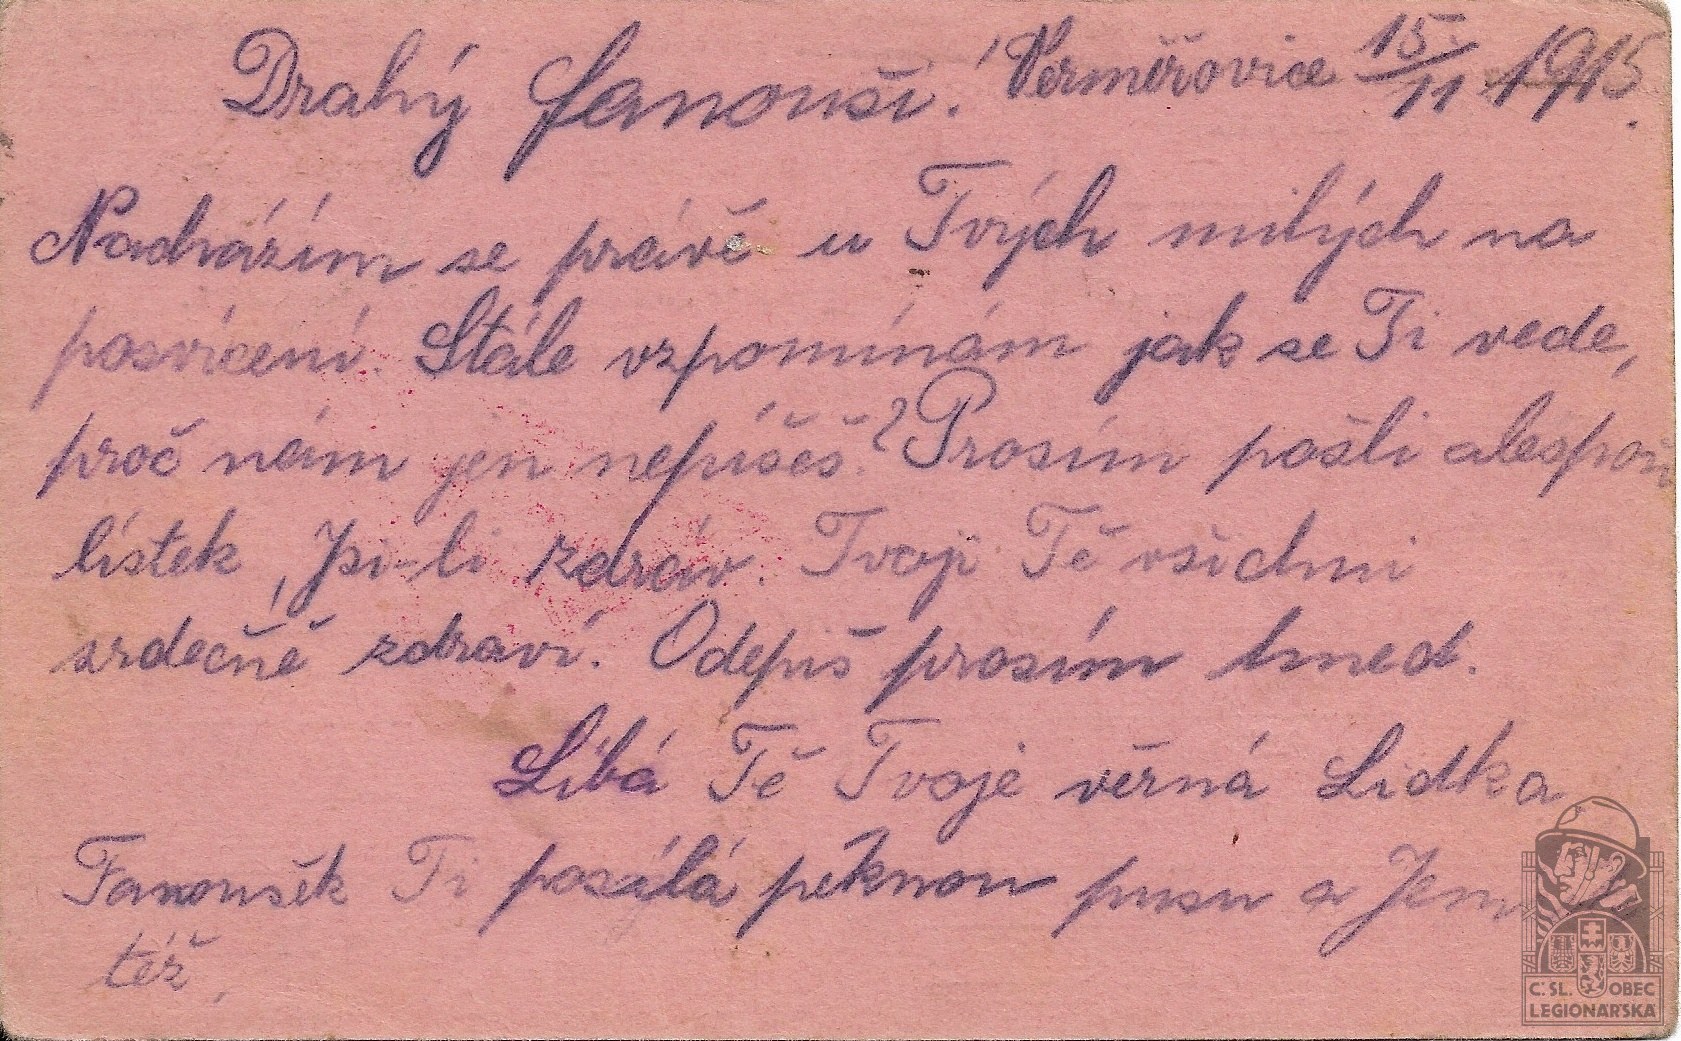 Drahý Fanouši! Verměřovice 15/11 1915.
Nadrázím se právě u Tvých milých na
posvícení. Stále vzpomínám jak se Ti vede,
proč nám jen nepíšeš? Prosím pošli alespoň
lístek, Jsi-li zdráv. Tvoji Tě všichni
srdečně zdraví. Odepiš prosím hned.
Líbá Tě Tvoje věrná Lidka
Fanoušek Ti posílá pěknou pusu a
též.
Č.SL. OBEC
LEGIONÁŘSKÁ